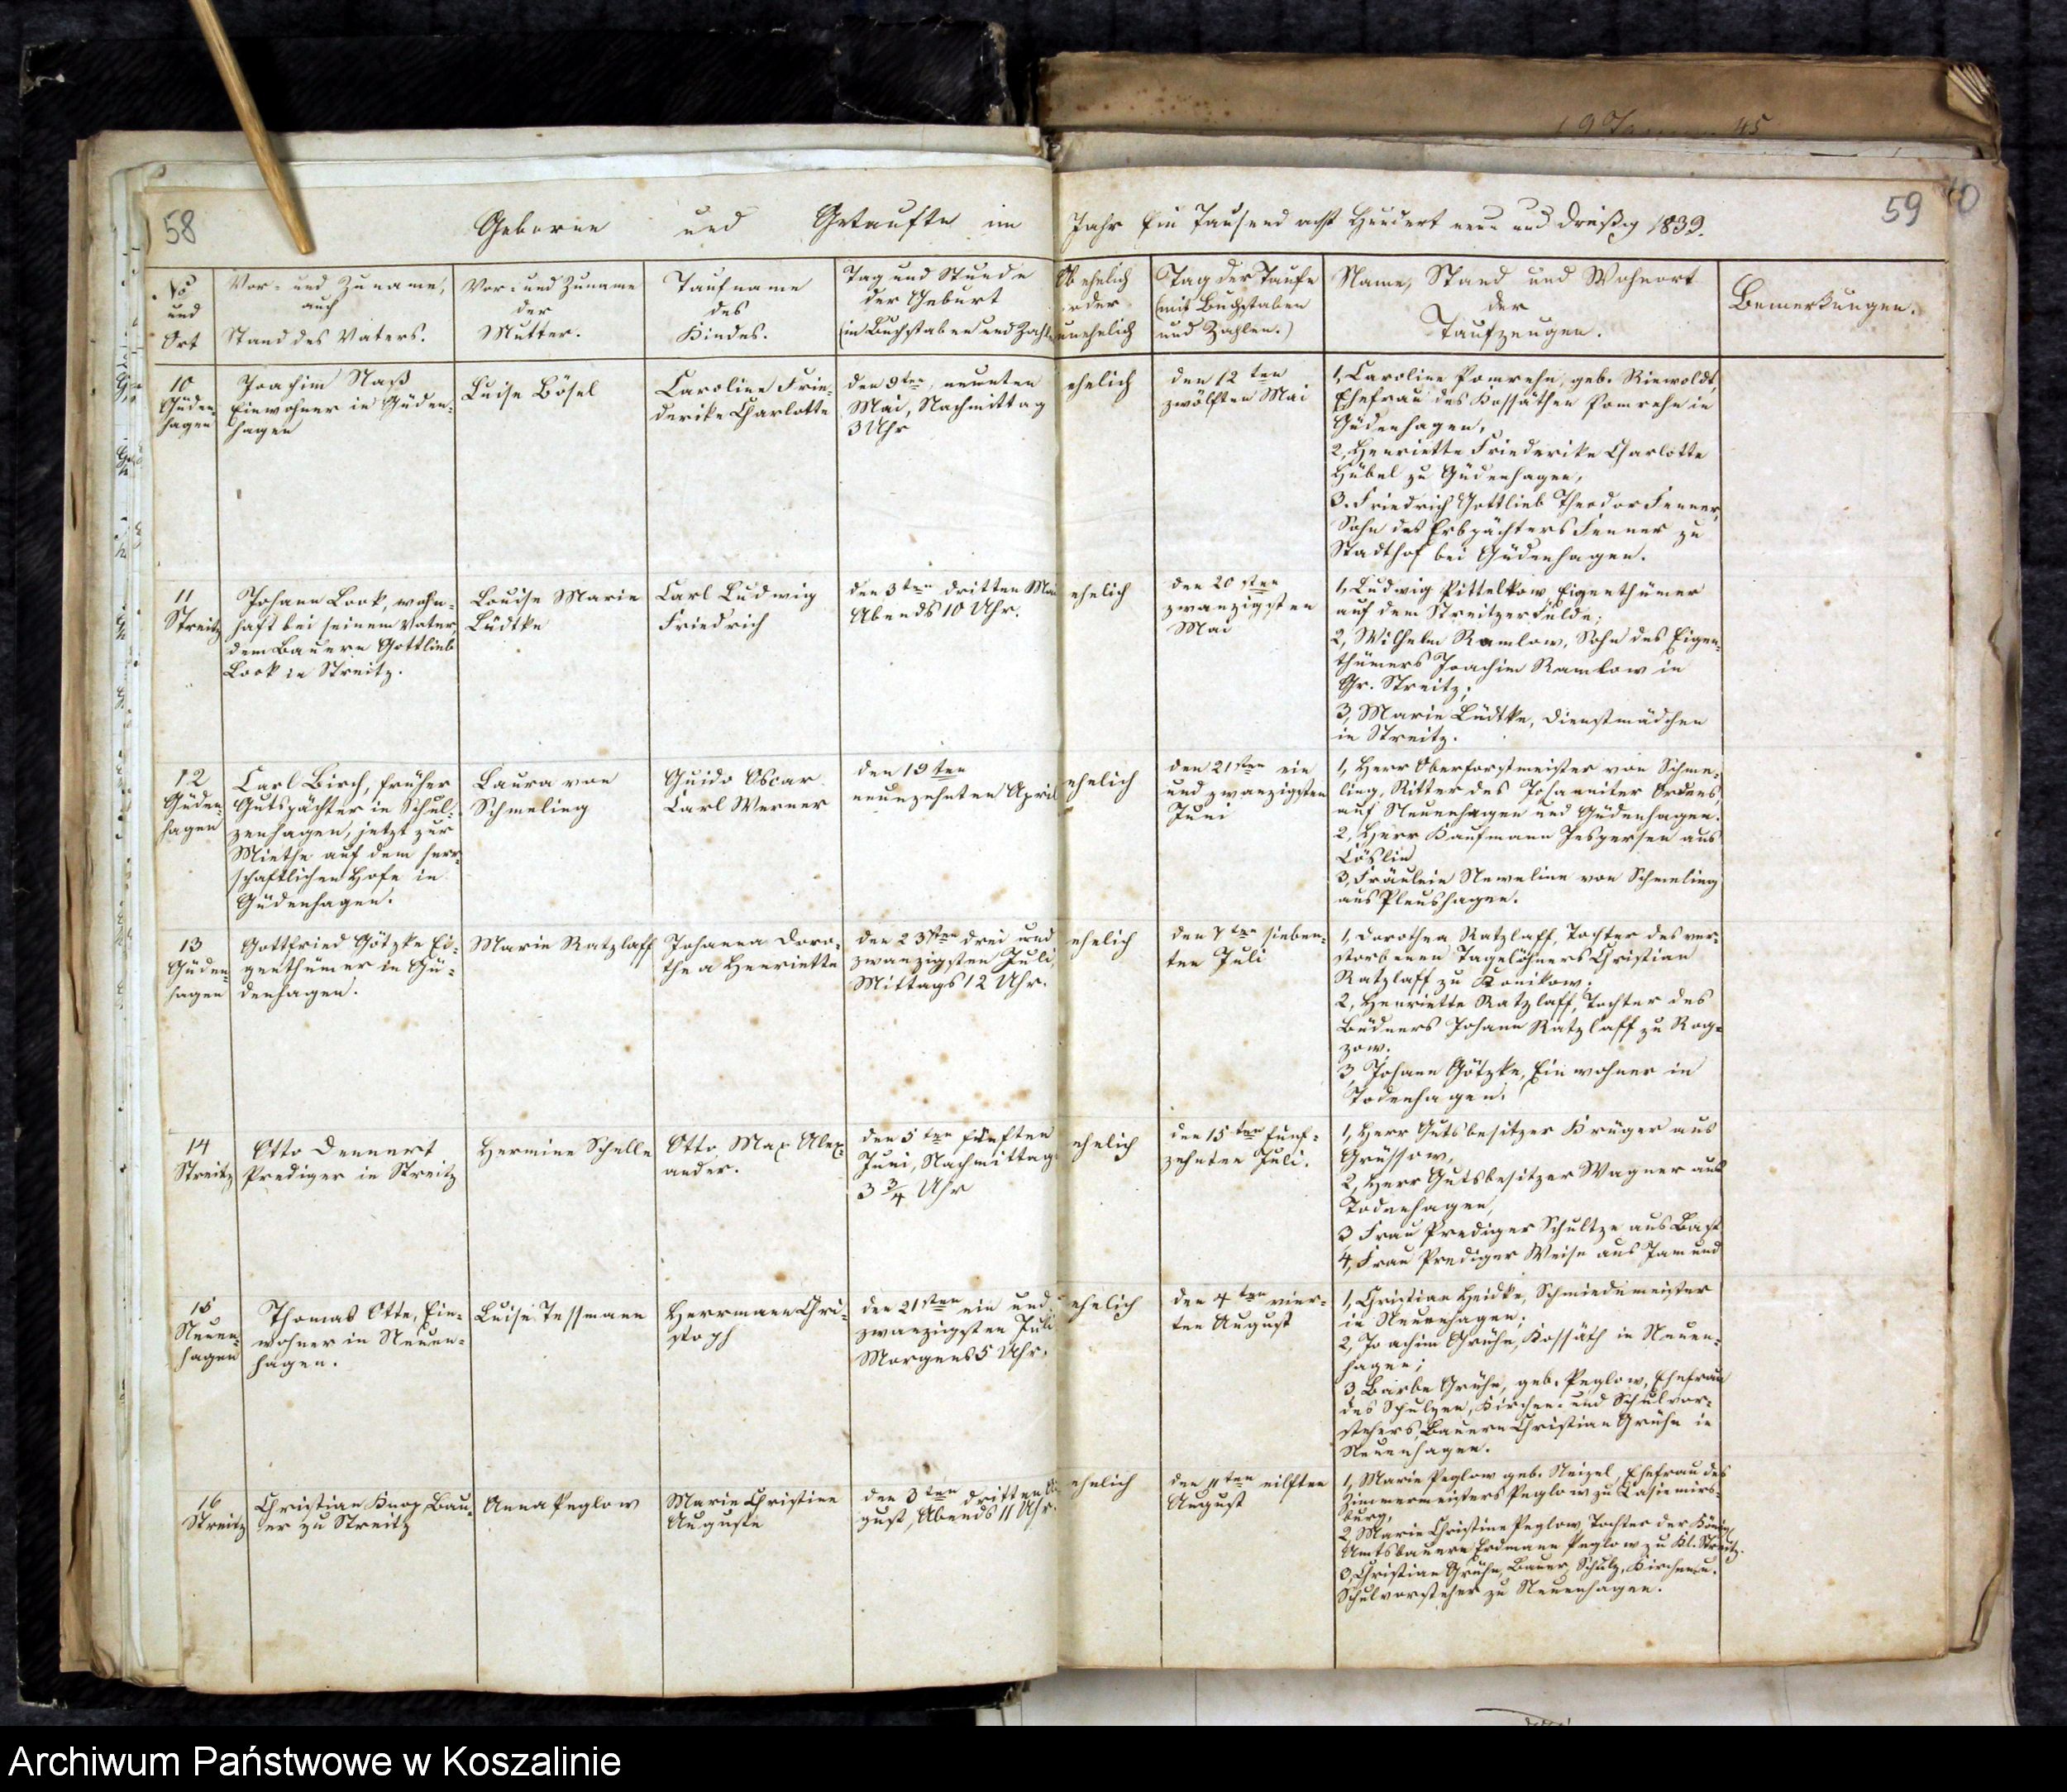 58
59
Geborne und Getaufte im Jahr Ein Tausend acht Hundert neun und dreißig 1839.
No
und
Ort
Vor- und Zuname,
auch
Stand des Vaters.
Vor- und Zuname
der
Mutter.
Taufname
des
Kindes.
Tag und Stunde
der Geburt
(in Buchstaben und Zahl
Ob ehelich
oder
unehelich
Tag der Taufe
(mit Buchstaben
und Zahlen.)
Name, Stand und Wohnort
der
Taufzeugen.
Bemerkungen.
10
Güden-
hagen
Joachim Naß
Einwohner in Güden-
hagen
Luise Bösel
Caroline Frie-
derike Charlotte
den 9ten, neunten
Mai, Nachmittag
3 Uhr
ehelich
den 12ten
zwölften Mai
1, Caroline Pomrehn, geb. Riewoldt,
Ehefrau des Kossäthen Pomrehn in
Güdenhagen,
2, Henriette Friederike Charlotte
Hübel zu Güdenhagen,
3. Friedrich Gottlieb Theodor Fenner,
Sohn des Erbpächters Fenner zu
Stadthof bei Güdenhagen.
11
Streitz
Johann Look, wohn-
haft bei seinem Vater,
dem Bauern Gottlieb
Look in Streitz.
Louise Marie
Lüdtke
Carl Ludwig
Friedrich
den 3ten dritten Mai
Abends 10 Uhr.
ehelich
den 20sten
zwanzigsten
Mai
1, Ludwig Pittelkow, Eigenthümer
auf dem Streitzer Felde;
2, Wilhelm Ramlow, Sohn des Eigen-
thümers Joachim Ramlow in
Gr. Streitz;
3, Marie Lüdtke, Dienstmädchen
in Streitz.
12
Güden-
hagen
Carl Birch, früher
Gutspächter in Schul-
zenhagen, jetzt zur
Miethe auf dem herr-
schaftlichen Hofe in
Güdenhagen.
Laura von
Schmeling
Guido Oscar
Carl Werner
den 19ten
neunzehnten April
ehelich
den 21sten ein
und zwanzigsten
Juni
1, Herr Oberforstmeister von Schme-
ling, Ritter des Johanniter Ordens,
auf Neuenhagen und Güdenhagen.
2, Herr Kaufmann Jespersen aus
Cöslin
3, Fräulein Neweline von Schmeling
aus Pleushagen.
13
Güden-
hagen
Gottfried Götzke Ei-
genthümer in Gü-
denhagen.
Marie Ratzlaff
Johanna Doro-
thea Henriette
den 23sten drei und
zwanzigsten Juli,
Mittags 12 Uhr.
ehelich
den 7ten sieben-
ten Juli
1, Dorothea Ratzlaff, Tochter des ver-
storbenen Tagelöhners Christian
Ratzlaff zu Konikow.
2, Henriette Ratzlaff, Tochter des
Büdners Johann Ratzlaff zu Rog-
zow.
3, Johann Götzke, Einwohner in
Todenhagen.
14
Streitz
Otto Dennert
Prediger in Streitz
Hermine Schelle
Otto, Max Alex-
ander.
den 5ten fünften
Juni, Nachmittag
3 3/4 Uhr
ehelich
den 15ten funf-
zehnten Juli.
1, Herr Gutsbesitzer Krüger aus
Grüssow,
2, Herr Gutsbesitzer Wagner aus
Todenhagen,
3 Frau Prediger Schultze aus Bast
4, Frau Prediger Weise aus Jamund
15
Neuen-
hagen
Thomas Otte, Ein-
wohner in Neuen-
hagen.
Luise Tessmann
Herrmann Chri-
stoph
den 21sten ein und
zwanzigsten Juli
Morgens 5 Uhr.
ehelich
den 4ten vier-
ten August
1, Christian Heidke, Schmiedemeister
in Neuenhagen;
2, Joachim Grühn, Kossäth in Neuen-
hagen;
3 Barbe Grühn, geb. Peglow, Ehefrau
des Schulzen, Kirchen- und Schulvor-
stehers, Bauern Christian Grühn in
Neuenhagen.
16
Streitz
Christian Knop, Bau-
er zu Streitz
Anna Peglow
Marie Christine
Auguste
den 3ten dritten Au
gust, Abends 11 Uhr.
ehelich
den 11ten eilften
August
1, Marie Peglow geb. Neizel, Ehefrau des
Zimmermeisters Peglow zu Casimirs-
burg,
2, Marie Christine Peglow, Tochter der Königl.
Amtsbauern Erdmann Peglow zu Kl. Streitz.
3, Christian Grühn, Bauer, Schulz, Kirchen u.
Schulvorsteher zu Neuenhagen.
Archiwum Państwowe w Koszalinie